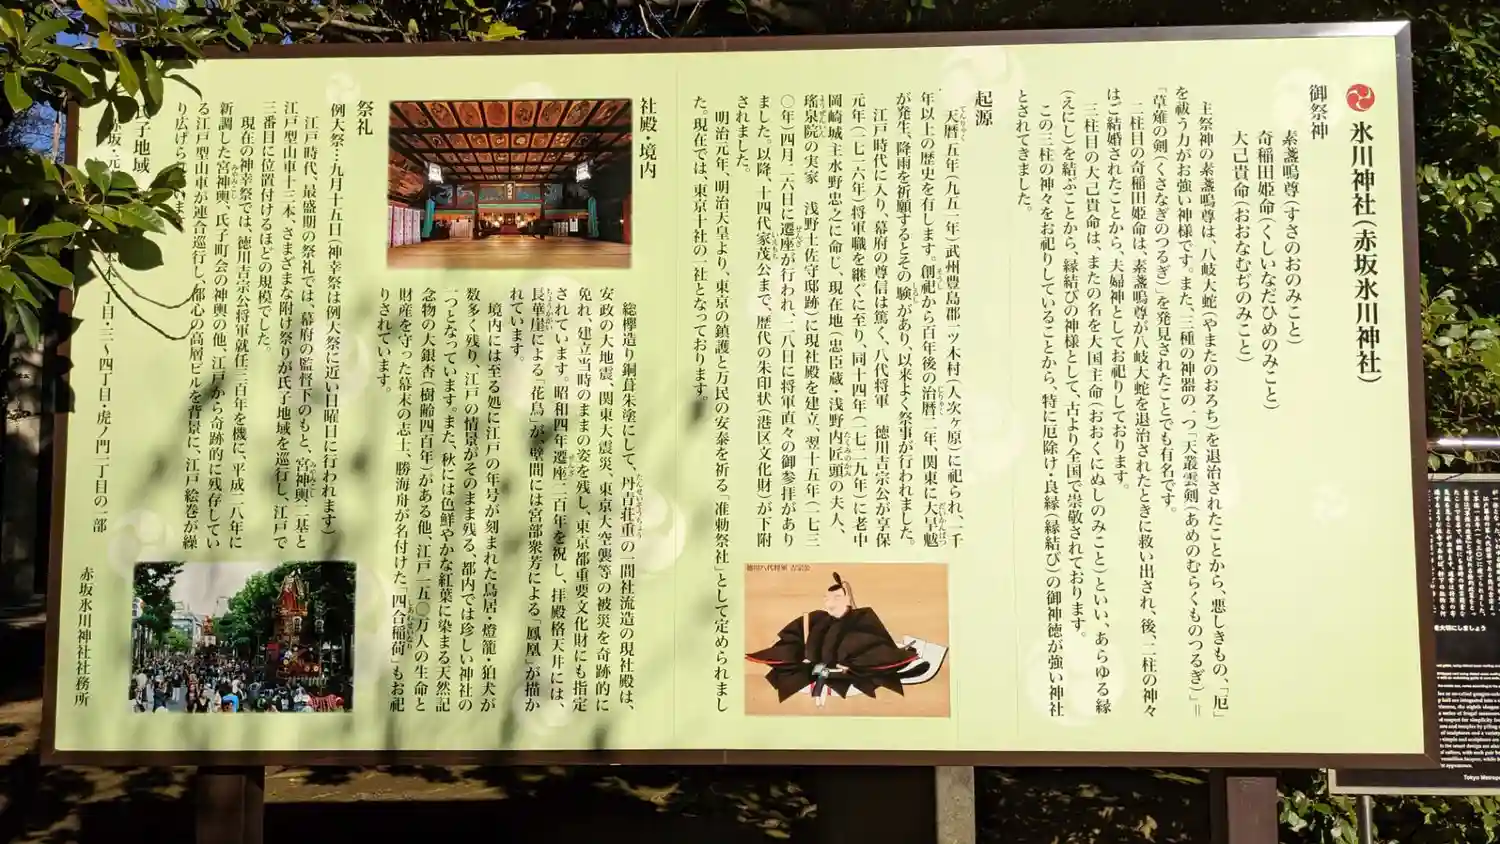 氷川神社(赤坂氷川神社)
御祭神
素盞嗚尊(すさのおのみこと)
奇稲田姫命(くしいなだひめのみこと)
大己貴命(おおなむぢのみこと)
主祭神の素盞嗚尊は、八岐大蛇(やまたのおろち)を退治されたことから、悪しきもの、「厄」
を祓う力がお強い神様です。また、三種の神器の一つ「天叢雲剣(あめのむらくものつるぎ)」＝
「草薙の剣(くさなぎのつるぎ)」を発見されたことでも有名です。
二柱目の奇稲田姫命は、素盞嗚尊が八岐大蛇を退治されたときに救い出され、後、二柱の神々
はご結婚されたことから、夫婦神としてお祀りしております。
三柱目の大己貴命は、またの名を大国主命(おおくにぬしのみこと)といい、あらゆる縁
(えにし)を結ぶことから、縁結びの神様として、古より全国で崇敬されております。
この三柱の神々をお祀りしていることから、特に厄除け・良縁(縁結び)の御神徳が強い神社
とされてきました。
起源
天暦五年(九五一年)武州豊島郡一ツ木村(人次ヶ原)に祀られ、一千
年以上の歴史を有します。創祀から百年後の治暦二年、関東に大旱魃
が発生、降雨を祈願するとその験があり、以来よく祭事が行われました。
江戸時代に入り、幕府の尊信は篤く、八代将軍 徳川吉宗公が享保
元年(一七一六年)将軍職を継ぐに至り、同十四年(一七二九年)に老中
岡崎城主水野忠之に命じ、現在地(忠臣蔵・浅野内匠頭の夫人、
瑤泉院の実家 浅野土佐守邸跡)に現社殿を建立、翌十五年(一七三
〇年)四月二六日に遷座が行われ、二八日に将軍直々の御参拝があり
ました。以降、十四代家茂公まで、歴代の朱印状(港区文化財)が下附
されました。
明治元年、明治天皇より、東京の鎮護と万民の安泰を祈る「准勅祭社」として定められまし
た。現在では、東京十社の一社となっております。
徳川八代将軍 吉宗公
社殿・境内
総欅造り銅葺朱塗にして、丹青荘重の一間社流造の現社殿は、
安政の大地震、関東大震災、東京大空襲等の被災を奇跡的に
免れ、建立当時のままの姿を残し、東京都重要文化財にも指定
されています。昭和四年遷座二百年を祝し、拝殿格天井には、
長華崖による「花鳥」が、壁間には宮部衆芳による「鳳凰」が描か
れています。
境内には至る処に江戸の年号が刻まれた鳥居・燈籠・狛犬が
数多く残り、江戸の情景がそのまま残る、都内では珍しい神社の
一つとなっています。また、秋には色鮮やかな紅葉に染まる天然記
念物の大銀杏(樹齢四百年)がある他、江戸一五〇万人の生命と
財産を守った幕末の志士、勝海舟が名付けた「四合稲荷」もお祀
りされています。
祭礼
例大祭…九月十五日(神幸祭は例大祭に近い日曜日に行われます)
江戸時代、最盛期の祭礼では、幕府の監督下のもと、宮神輿二基と
江戸型山車十三本、さまざまな附け祭りが氏子地域を巡行し、江戸で
三番目に位置付けるほどの規模でした。
現在の神幸祭では、徳川吉宗公将軍就任三百年を機に、平成二八年に
新調した宮神輿、氏子町会の神輿の他、江戸から奇跡的に残存してい
る江戸型山車が連合巡行し、都心の高層ビルを背景に、江戸絵巻が繰
り広げられています
氏子地域
赤坂・元 本木 丁目・三〜四丁目・虎ノ門二丁目の一部
赤坂氷川神社社務所
を大切にしましょう
Tokyo Metropo